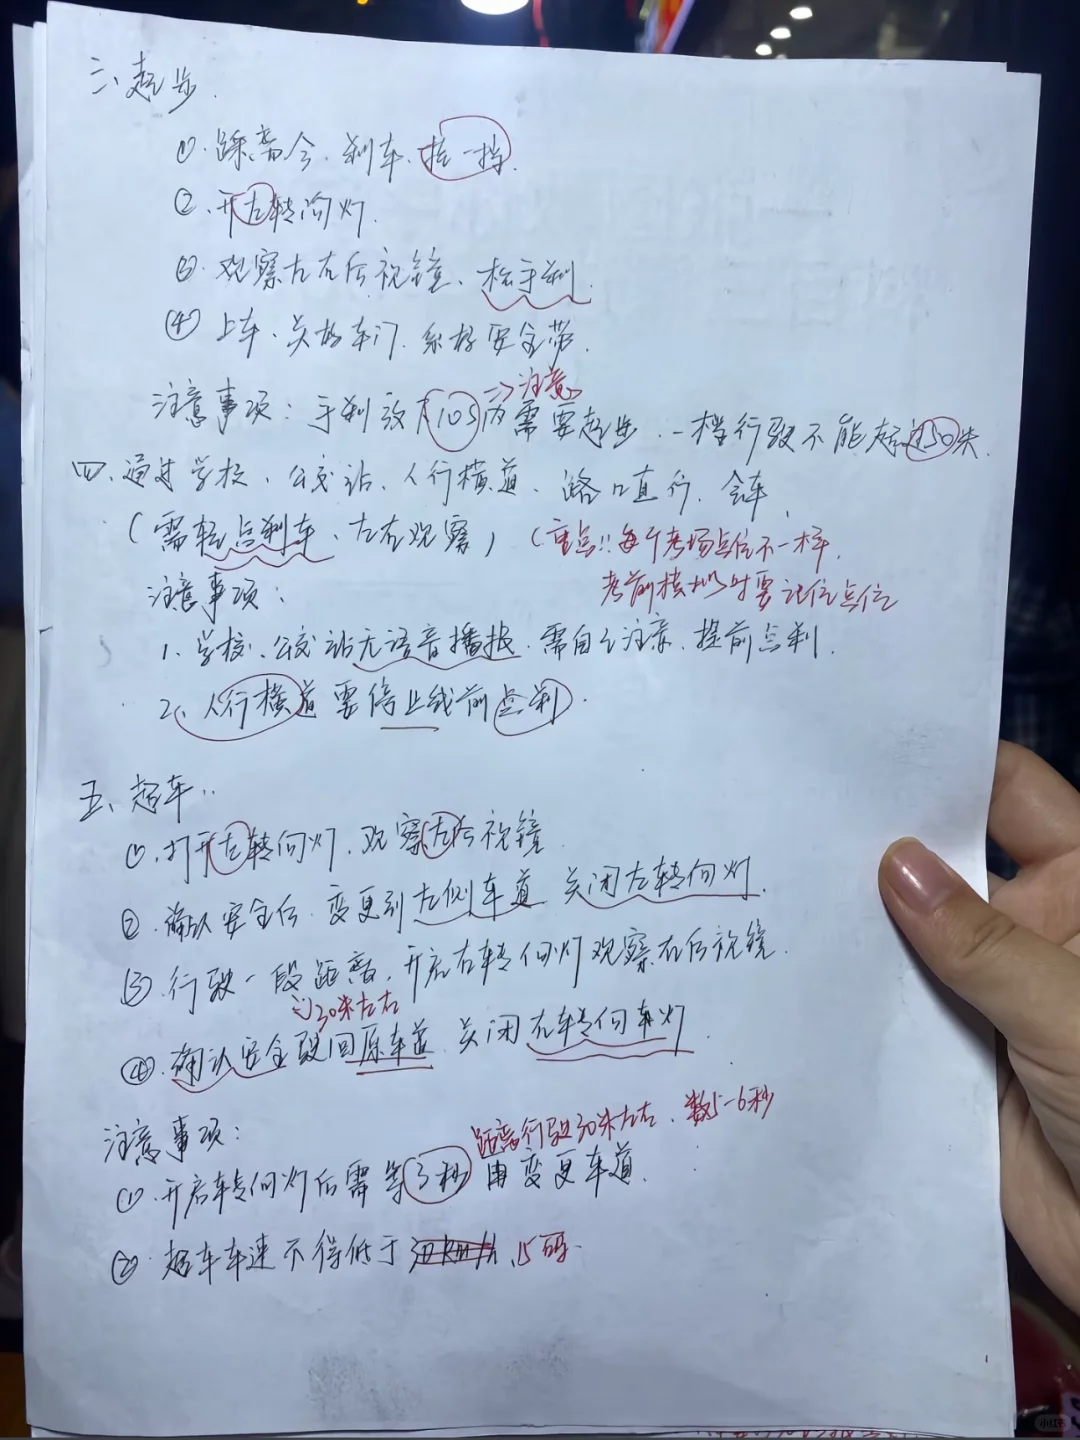 三、起步.
①.踩离合、刹车、挂一挡.
②.开左转向灯.
③.观察左右后视镜、松手刹.
④上车、关好车门.系好安全带.
=>注意
注意事项：手刹放下10S内需要起步.一档行驶不能超过50米.
四、通过学校、公交站、人行横道、路口直行、会车
(需轻点刹车、左右观察)
(重点!!每个考场点位不一样.
考前模拟时要记住点位
注意事项：
1、学校、公交站无语音播报.需自己注意、提前点刹.
2、人行横道要停止线前点刹.
五、超车..
①.打开左转向灯.观察左后视镜
②.确认安全后.变更到左侧车道 关闭左转向灯.
③.行驶一段距离.开启右转向灯观察右后视镜.
30米左右
④.确认安全驶回原车道 关闭右转向车灯
距离行驶30米左右.数5-6秒
注意事项：
①.开启转向灯后需等3秒再变更车道.
②.超车车速不得低于 15码.